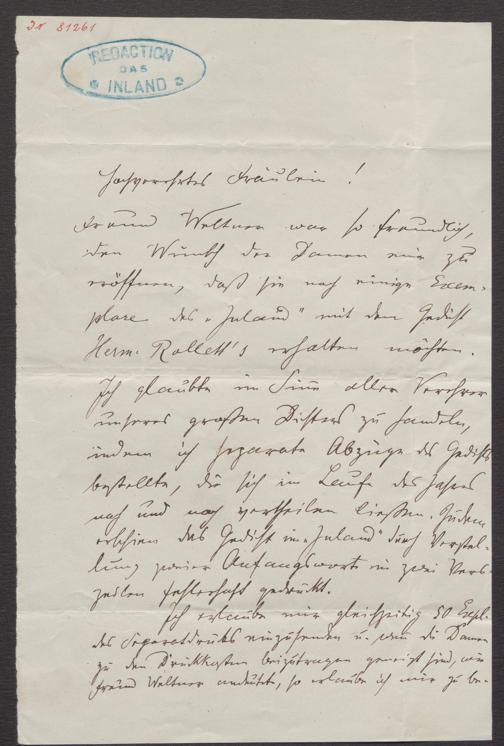 IN 81261
REDACTION
DAS
INLAND
Hochverehrtes Fräulein!
Freund Weltner war so freundlich,
den Wunsch der Damen mir zu
eröffnen, daß sie noch einige Exem-
plare des "Inland" mit dem Gedicht
Herm. Rollett's erhalten möchten.
Ich glaubte im Sinne aller Verehrer
unseres großen Dichters zu handeln,
indem ich separate Abzüge des Gedichts
bestellte, die sich im Laufe des Jahres
nach und nach vertheilen ließen. Zudem
erschien das Gedicht im "Inland" durch Verstel-
lung zweier Anfangsworte in zwei Vers-
zeilen fehlerhaft gedruckt.
Ich erlaube mir gleichzeitig 50 Expl.
des Separatdrucks einzusenden u. wenn die Damen
zu den Druckkosten beizutragen geneigt sind, wie
Freund Weltner andeutet, so erlaube ich mir zu be-